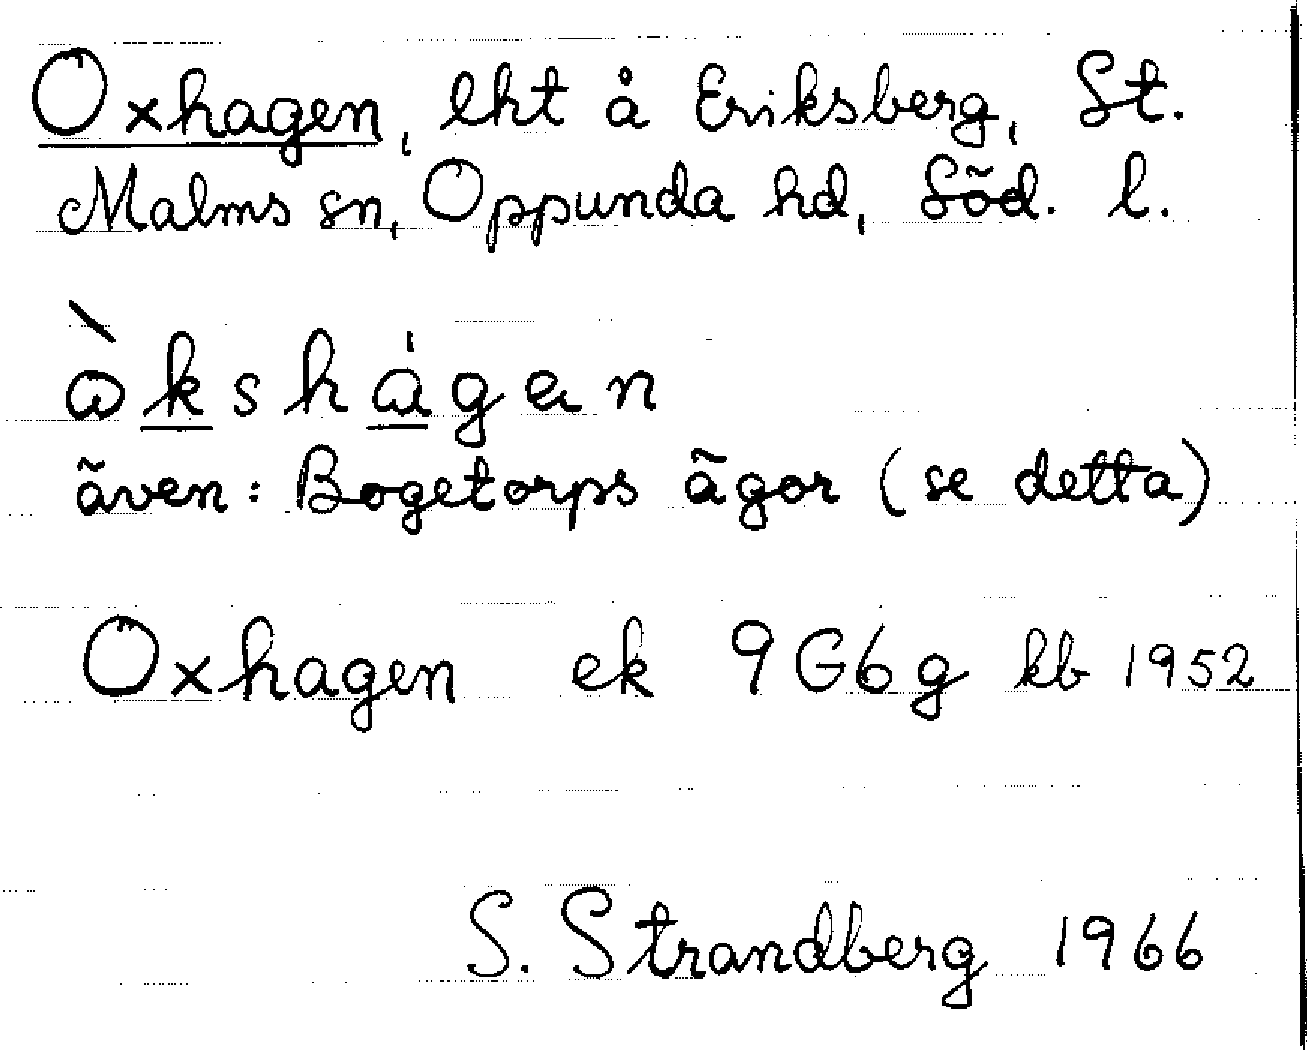 Oxhagen, lht å Eriksberg, St.
Malms sn, Oppunda hd, Söd. l.
ò̀kshágen
även: Bogetorps ägor (se detta)
Oxhagen ek 9G6g kb 1952
S. Strandberg 1966